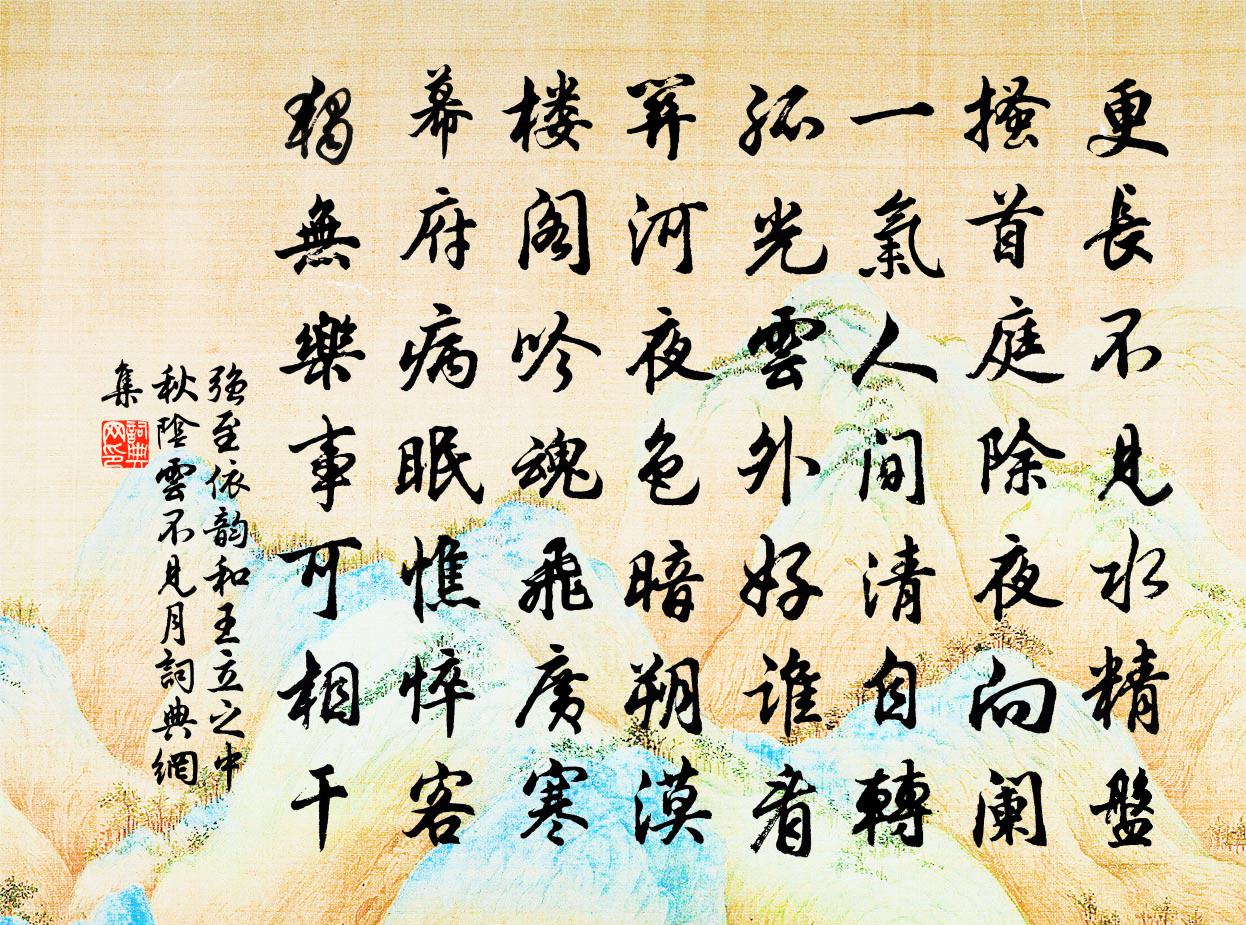 更長不見水精盤
搔首庭除夜向阑
一氣人間清自轉
孤光雲外好誰看
關河夜色暗朔漠
楼阁吟魂飛廣寒
幕府病眠憔悴客
獨無樂事可相干
强至依韵和王立之中
秋陰雲不見月詞典網
集
詞典网印